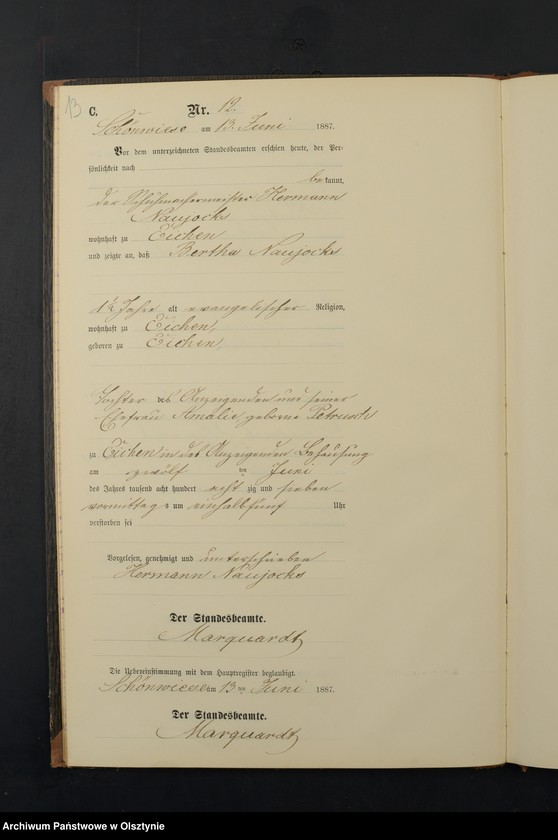 13
C. Nr. 12.
Schönwiese am 13. Juni 1887.
Vor dem unterzeichneten Standesbeamten erschien heute, der Per-
sönlichkeit nach
be kannt,
der Schuhmachermeister Hermann
Naujocks
wohnhaft zu Eichen
und zeigte an, daß Bertha Naujocks
1½ Jahre alt evangelischer Religion,
wohnhaft zu Eichen,
geboren zu Eichen,
Tochter des Anzeigenden und seiner
Ehefrau Amalie, geborne Petrusch
zu Eichen in des Anzeigenden Behausung
am zwölften Juni
des Jahres tausend acht hundert achtzig und sieben
vormittags um einhalbfünf Uhr
verstorben sei
Vorgelesen, genehmigt und unterschrieben
Hermann Naujocks
Der Standesbeamte.
Marquardt
Die Uebereinstimmung mit dem Hauptregister beglaubigt.
Schönwiese am 13ten Juni 1887.
Der Standesbeamte.
Marquardt
Archiwum Państwowe w Olsztynie